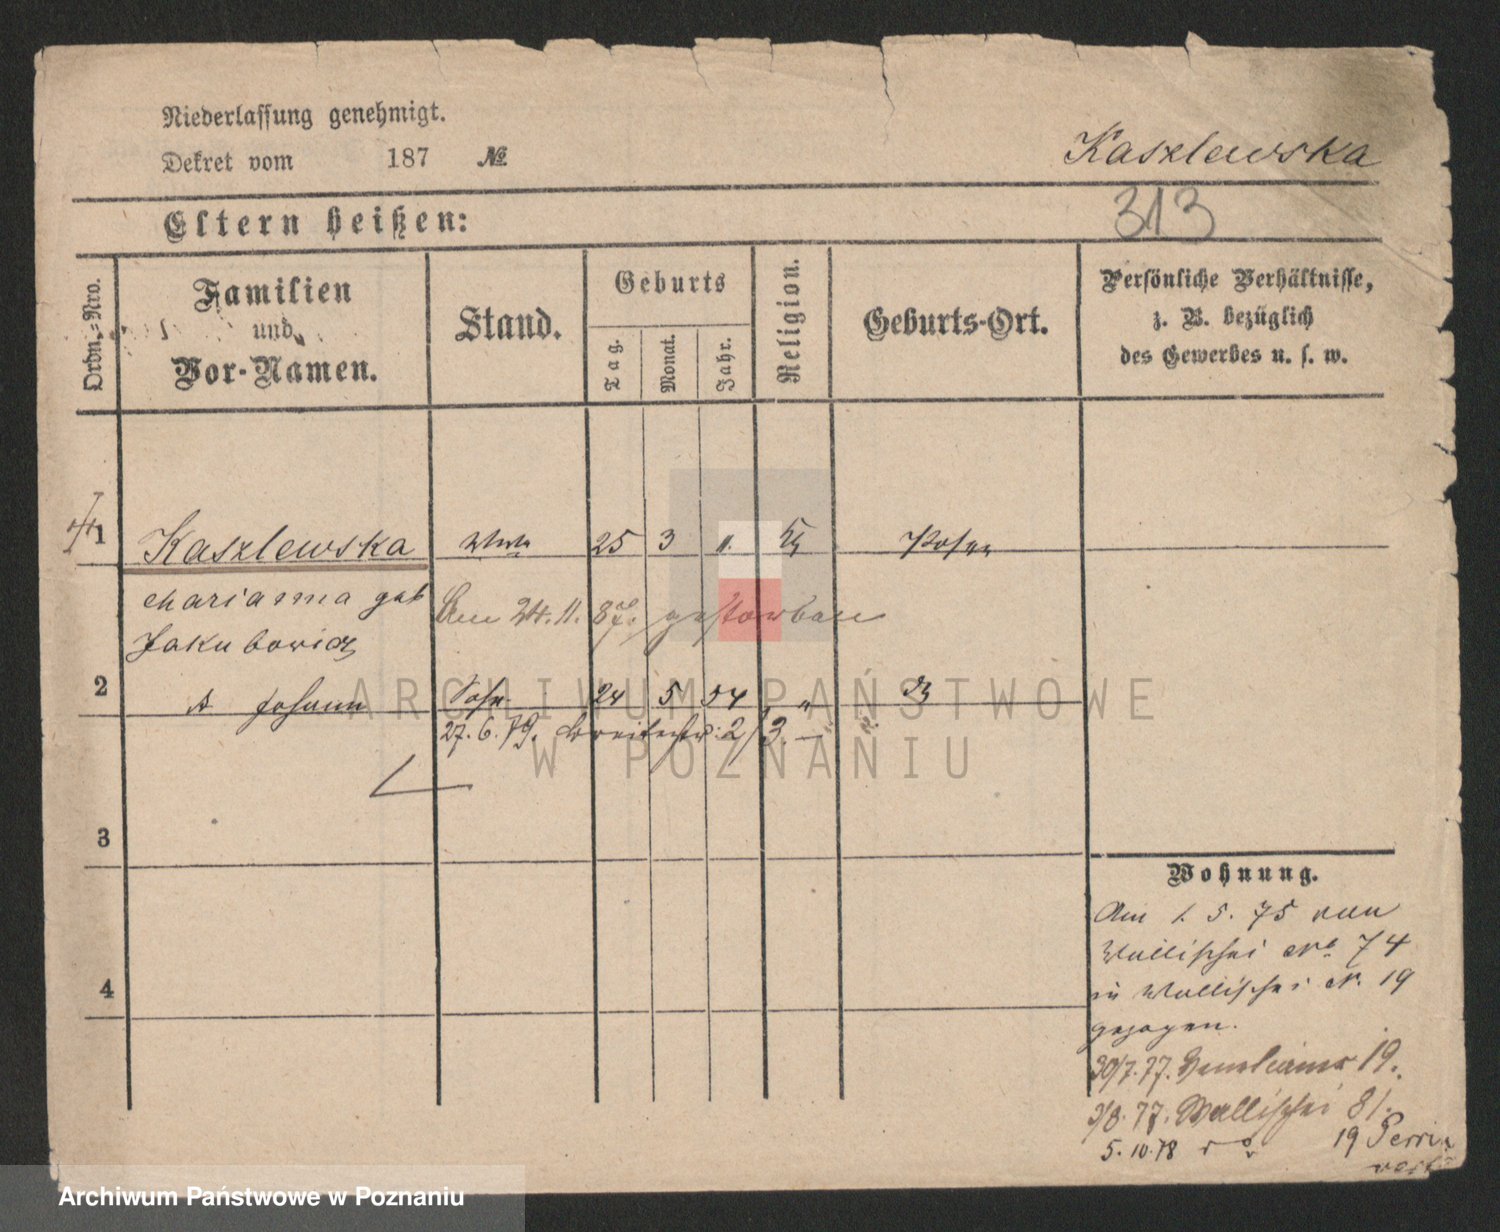 Niederlassung genehmigt.
Dekret vom 187 №
Kaszlewska
313
Eltern heißen:
Ordn.-Nro.
Familien
und
Vor-Namen.
Stand.
Geburts
Tag.
Monat.
Jahr.
Religion.
Geburts-Ort.
Persönliche Verhältnisse,
z. B. bezüglich
des Gewerbes u. s. w.
1 Kaszlewska 25 3 11. Posen
Marianna geb
Am 24. 11. 87. gestorben
Jakubowicz
2 Johann Sohn 24 5 54 "
27. 6. 79. Breitestr. 2/3.
3
4
Wohnung.
Am 1. 5. 75 von
Wallischei No 74
in Wallischei N. 19
gezogen.
30/7. 77. 19.
3/8. 77. Wallischei 81.
5. 10. 78 19
ARCHIWUM PAŃSTWOWE
W POZNANIU
Archiwum Państwowe w Poznaniu